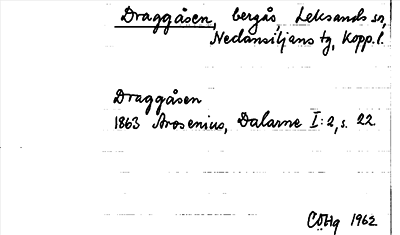 Draggåsen, bergås, Leksands sn,
Nedansiljans tg, Kopp. l.
Draggåsen
1863 Arosenius, Dalarne I: 2, s. 22.
1962